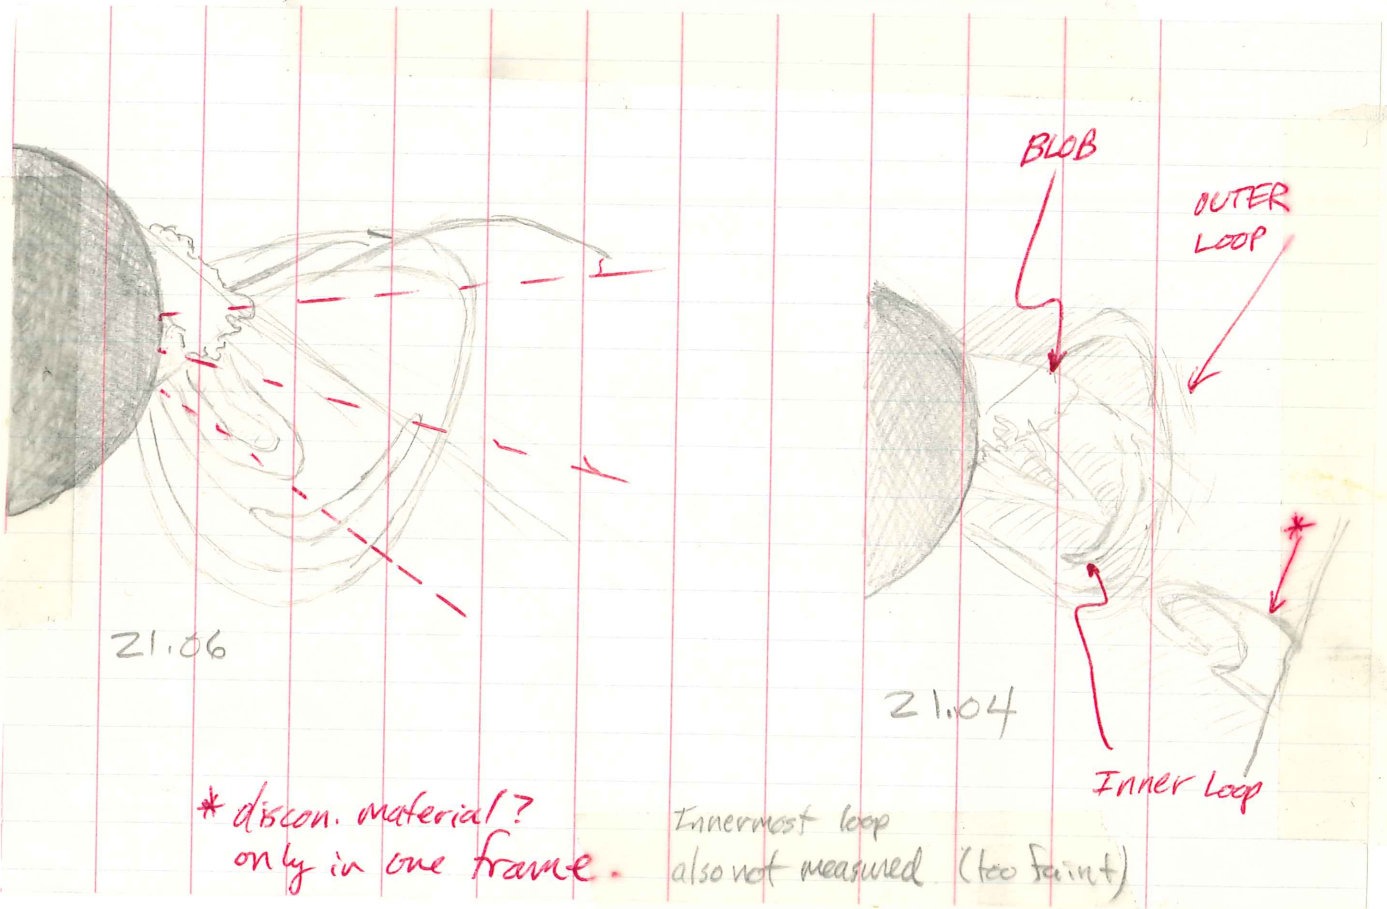 BLOB
OUTER
LOOP
*
21.06
21.04
Inner Loop
* discon. material?
only in one frame.
Innermost loop
also not measured (too faint)